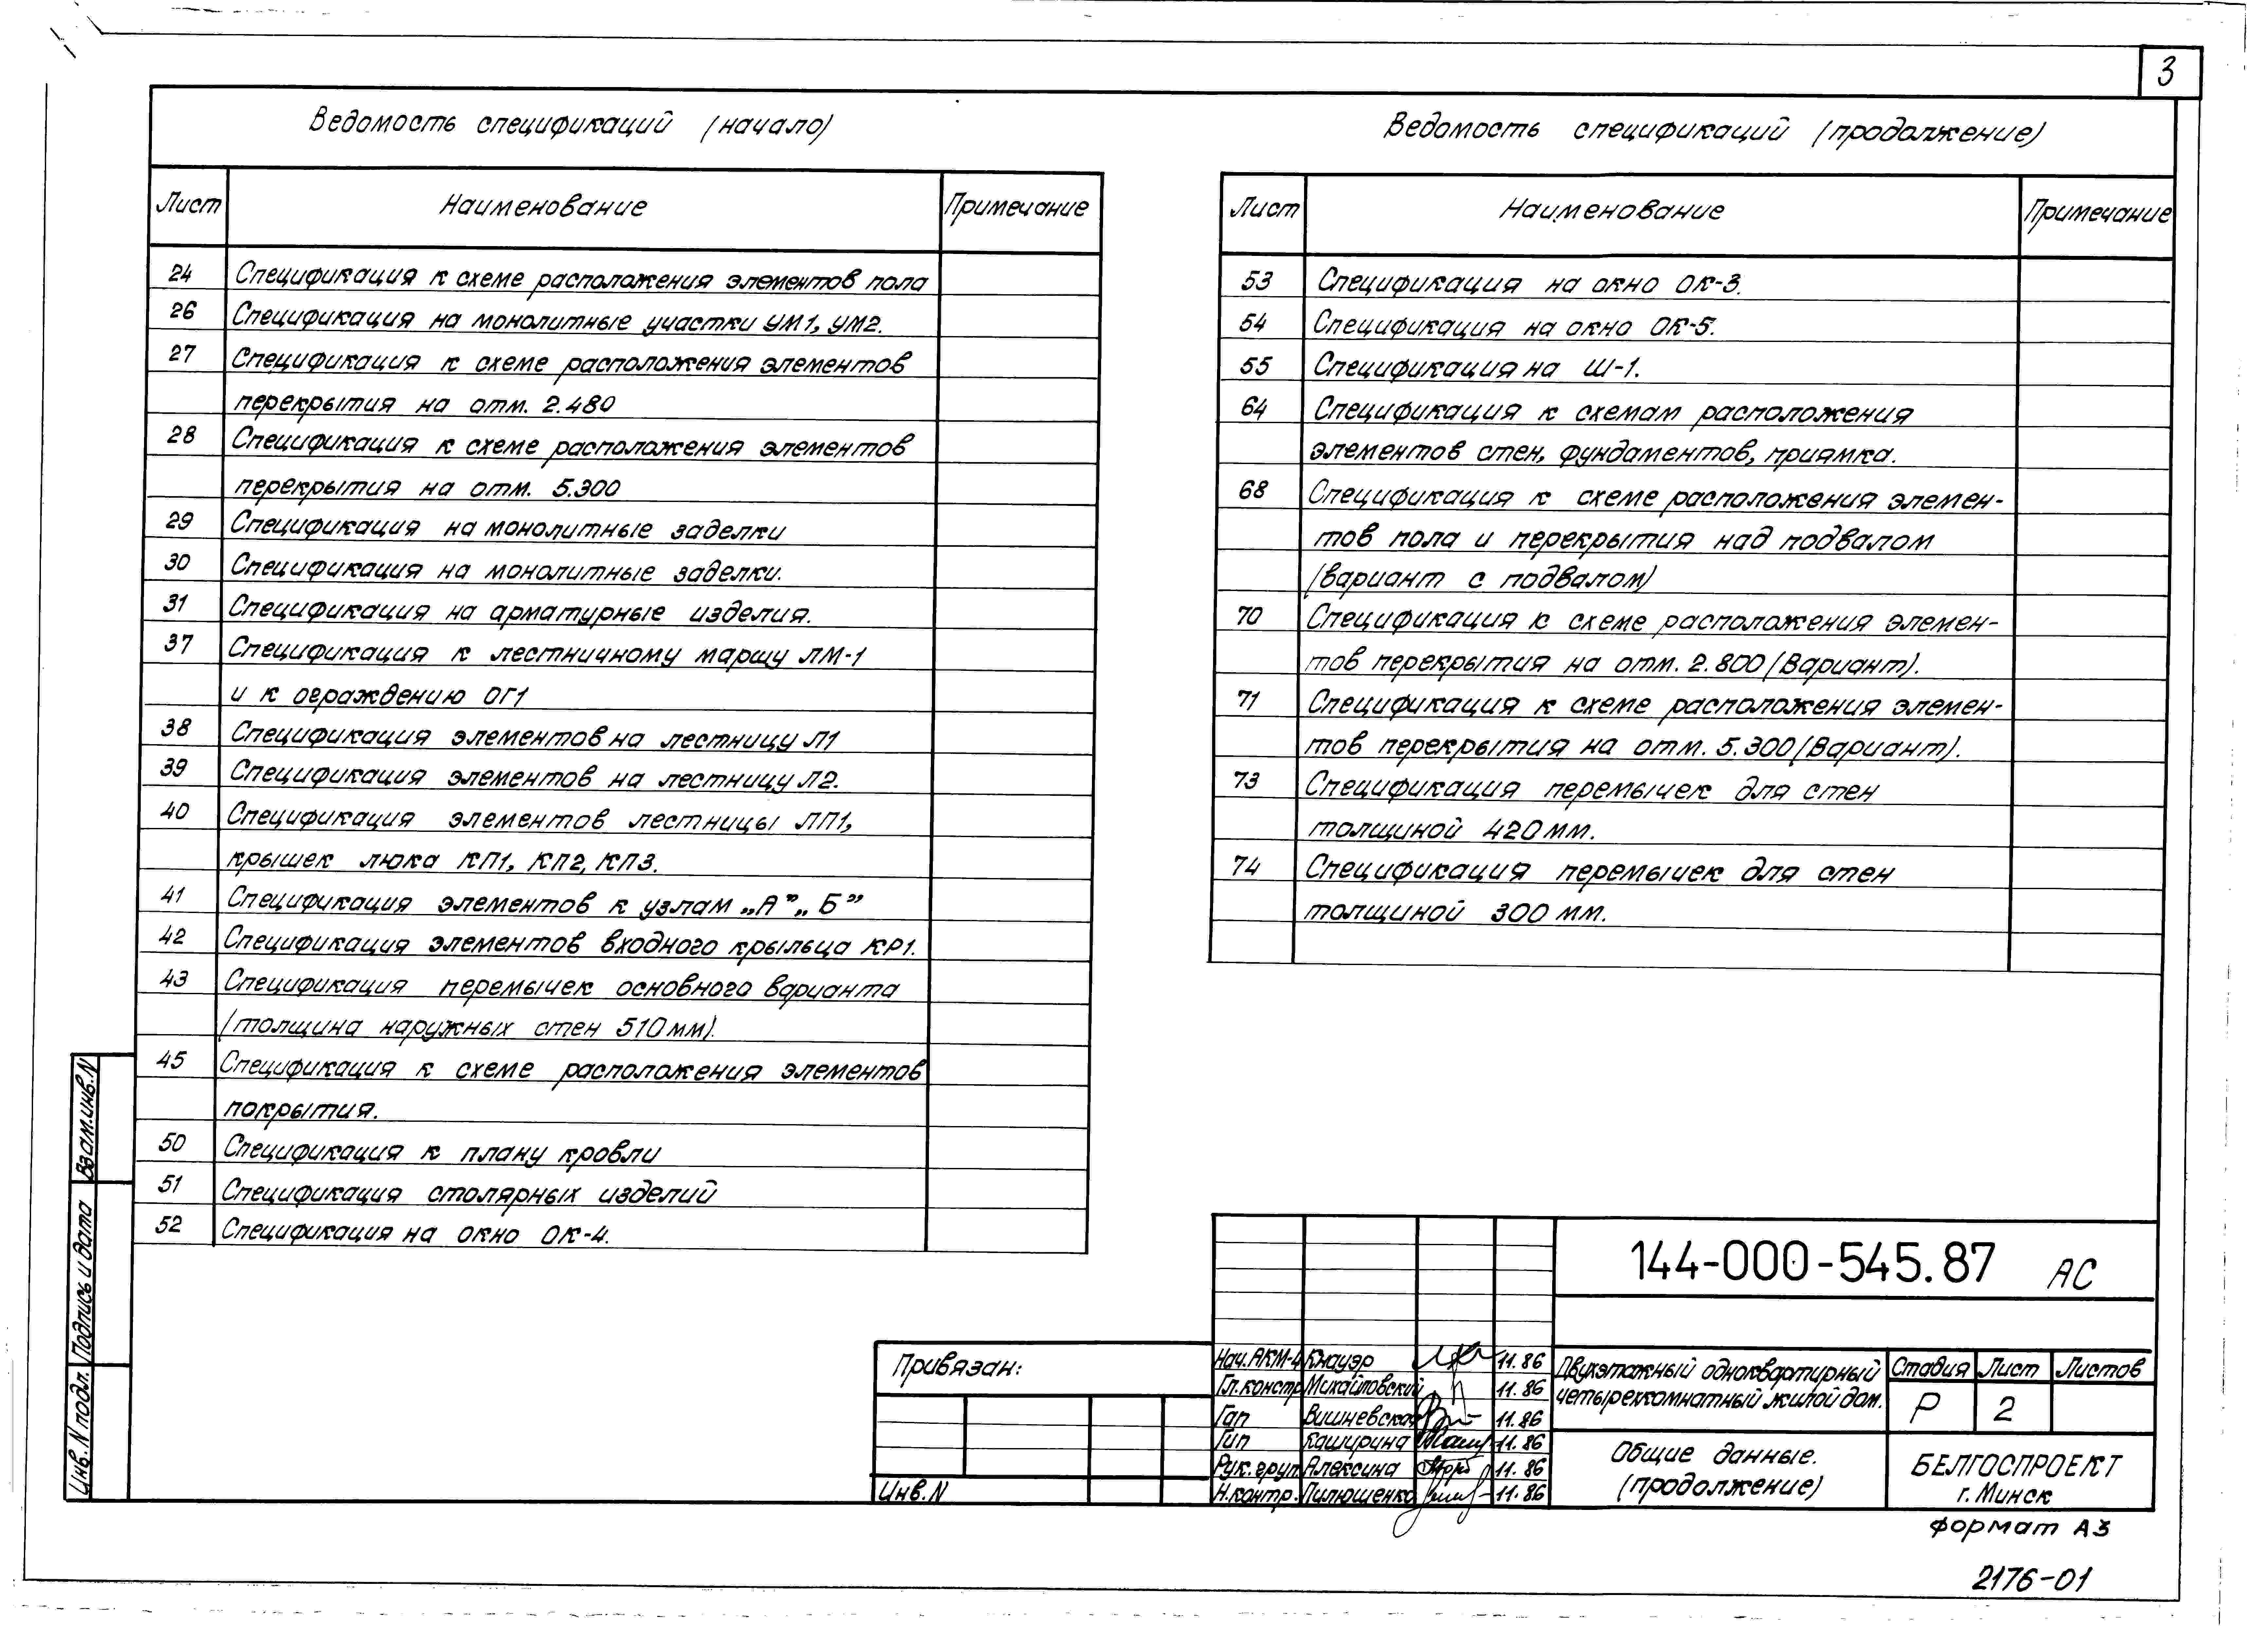 3
Ведомость спецификаций (начало)
Лист Наименование Примечание
24 Спецификация к схеме расположения элементов пола
26 Спецификация на монолитные участки УМ1, УМ2.
27 Спецификация к схеме расположения элементов
перекрытия на отм. 2.480
28 Спецификация к схеме расположения элементов
перекрытия на отм. 5.300
29 Спецификация на монолитные заделки
30 Спецификация на монолитные заделки.
31 Спецификация на арматурные изделия.
37 Спецификация к лестничному маршу ЛМ-1
и к ограждению ОГ1
38 Спецификация элементов на лестницу Л1
39 Спецификация элементов на лестницу Л2.
40 Спецификация элементов лестницы ЛП1,
крышек люка КП1, КП2, КП3.
41 Спецификация элементов к узлам „А”„ Б”
42 Спецификация элементов входного крыльца КР1.
43 Спецификация перемычек основного варианта
(толщина наружных стен 510мм).
45 Спецификация к схеме расположения элементов
покрытия.
50 Спецификация к плану кровли
51 Спецификация столярных изделий
52 Спецификация на окно ОК-4.
Ведомость спецификаций (продолжение)
Лист Наименование Примечание
53 Спецификация на окно ОК-3.
54 Спецификация на окно ОК-5.
55 Спецификация на Ш-1.
64 Спецификация к схемам расположения
элементов стен, фундаментов, приямка.
68 Спецификация к схеме расположения элемен-
тов пола и перекрытия над подвалом
(вариант с подвалом)
70 Спецификация к схеме расположения элемен-
тов перекрытия на отм. 2.800 (Вариант).
71 Спецификация к схеме расположения элемен-
тов перекрытия на отм. 5.300 (Вариант).
73 Спецификация перемычек для стен
толщиной 420мм.
74 Спецификация перемычек для стен
толщиной 300 мм.
Взам.инв.N
Подпись и дата
Инв.N подл.
Привязан:
Инв.N
144-000-545.87 АС
Нач.АКМ-4 Кнауэр 11.86
Гл.констр Михайловский 11.86
Гап Вишневская 11.86
Гип Каширина 11.86
Рук.груп. Алексина 11.86
Н.контр. Пилющенко 11.86
Двухэтажный одноквартирный
четырехкомнатный жилой дом.
Стадия Лист Листов
Р 2
Общие данные.
(продолжение)
БЕЛГОСПРОЕКТ
г. Минск
формат А3
2176-01